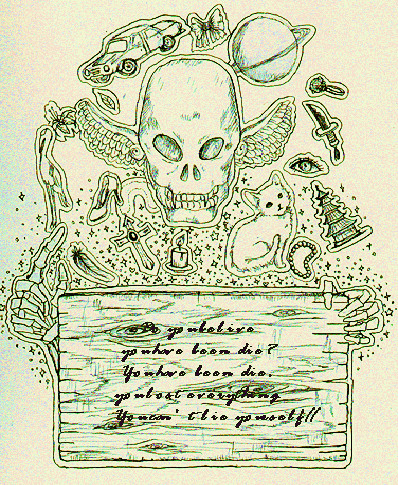 Do you belive
you have been die?
You have been die.
you lost everything
You can't lie yourself!!